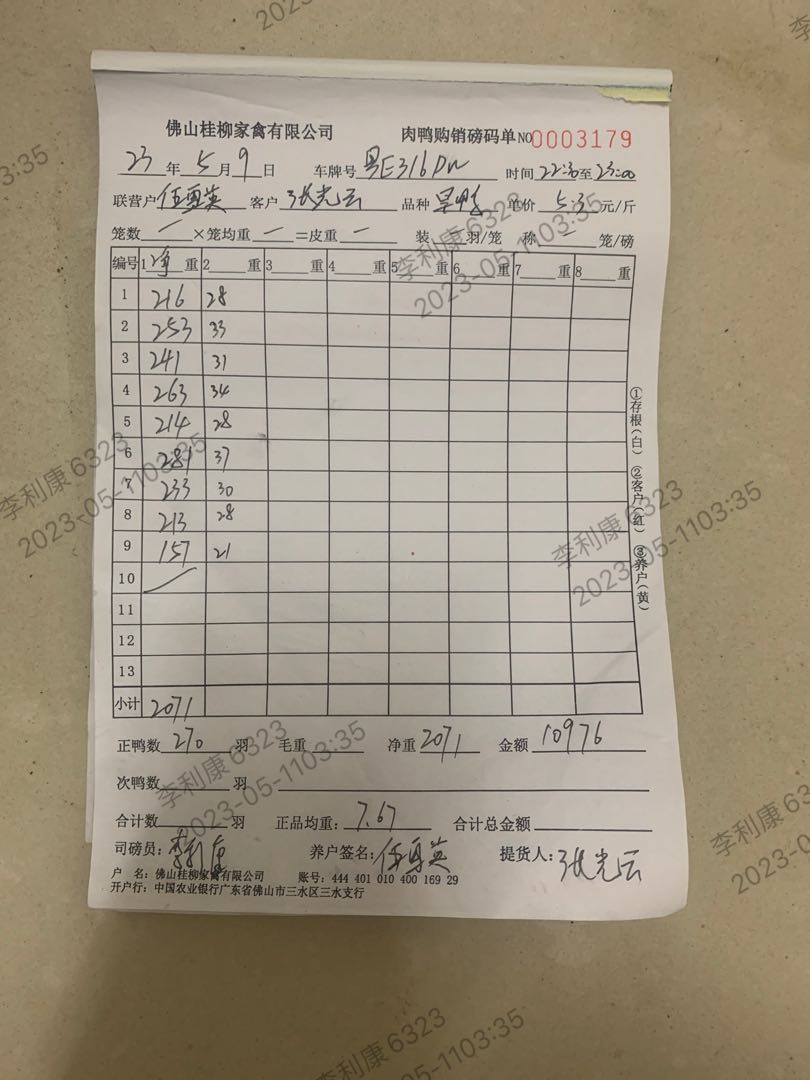 佛山桂柳家禽有限公司 肉鸭购销磅码单 NO 0003179
23 年 5 月 9 日 车牌号 粤E316DW 时间 22:30 至 23:00
联营户 伍勇英 客户 张光云 品种 旱鸭 单价 5.3 元/斤
笼数 一 ×笼均重 一 =皮重 一 装 一 羽/笼 称 一 笼/磅
编号 1 净 重 2 重 3 重 4 重 5 重 6 重 7 重 8 重
1 216 28
2 253 33
3 241 31
4 263 34
5 214 28
6 281 37
7 233 30
8 213 28
9 157 21
10
11
12
13
小计 2071
①存根(白) ②客户(红) ③养户(黄)
正鸭数 270 羽 毛重 净重 2071 金额 10976
次鸭数 羽
合计数 羽 正品均重: 7.67 合计总金额
司磅员: 李利康 养户签名: 伍勇英 提货人: 张光云
户 名: 佛山桂柳家禽有限公司 账号: 444 401 010 400 169 29
开户行: 中国农业银行广东省佛山市三水区三水支行
李利康 6323
2023-05-11 03:35